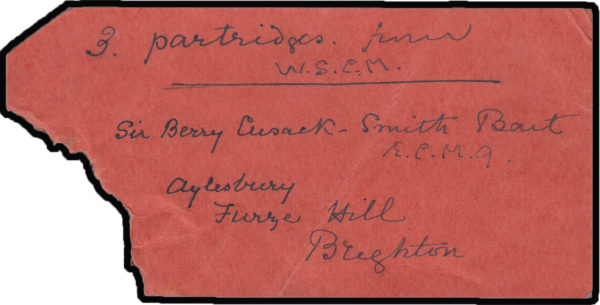 3. partridges. from
W.S.C.M.
Sir Berry Cusack-Smith Bart
K.C.M.G.
Aylesbury
Furze Hill
Brighton